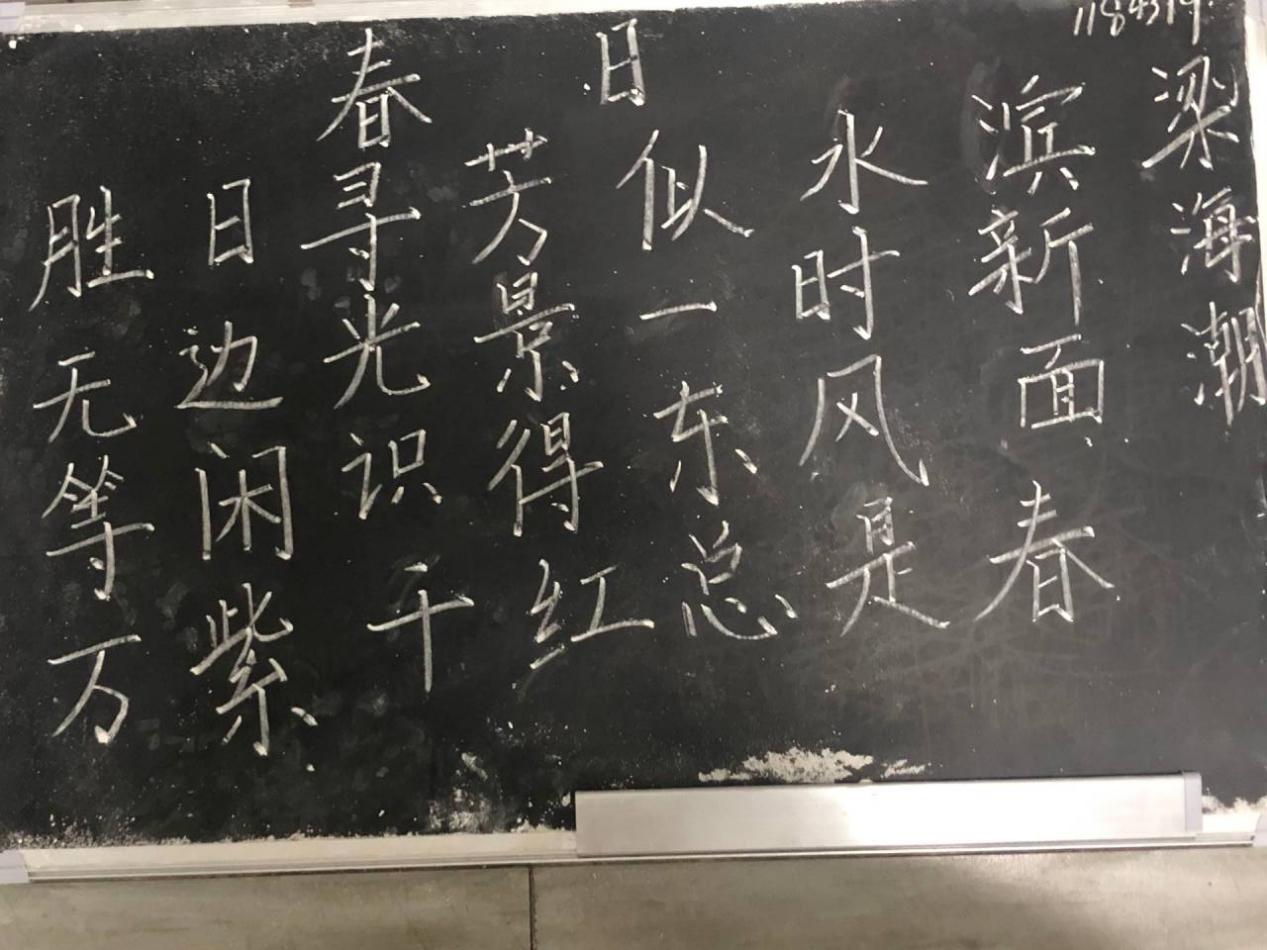 春日
胜日寻芳似水滨
无边光景一时新
等闲识得东风面
万紫千红总是春
梁海潮